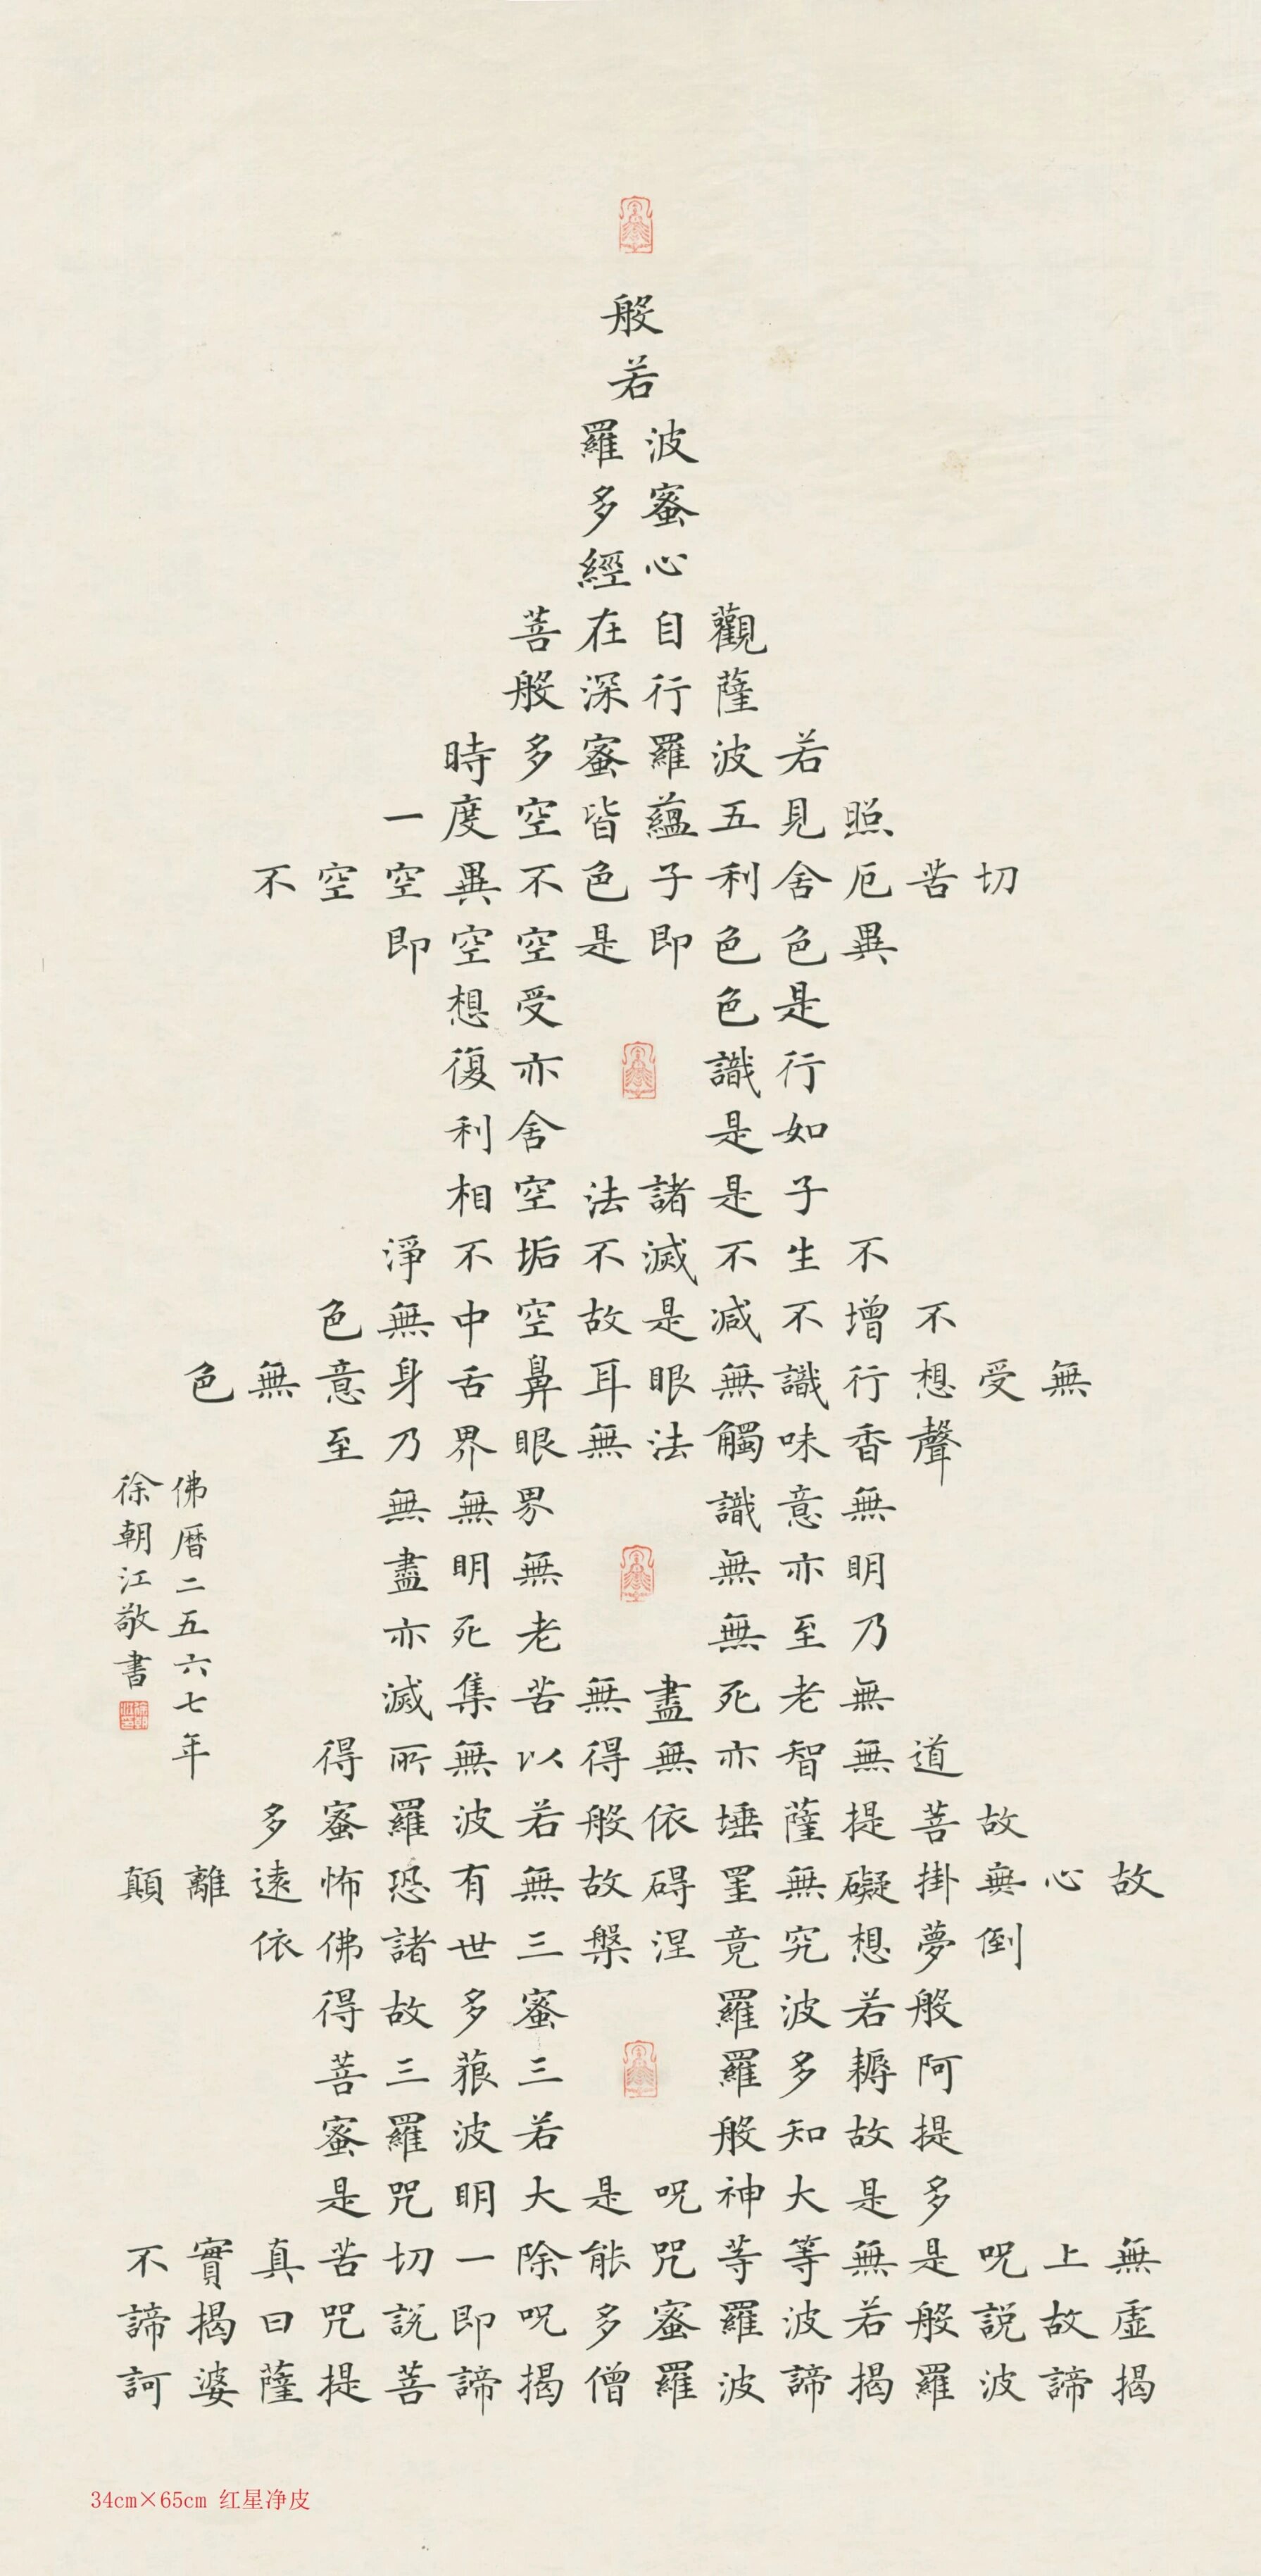 般
若
波羅
蜜多
心經
觀自在菩
薩行深般
若波羅蜜多時
照見五蘊皆空度一
切苦厄舍利子色不異空空不
異色色即是空空即
是色受想
行識亦復
如是舍利
子是諸法空相
不生不滅不垢不淨
不增不減是故空中無色
無受想行識無眼耳鼻舌身意無色
聲香味觸法無眼界乃至
無意識界無無
明亦無無明盡
乃至無老死亦
無老死盡無苦集滅
道無智亦無得以無所得
故菩提薩埵依般若波羅蜜多
故心無掛礙無罣碍故無有恐怖遠離顛
倒夢想究竟涅槃三世諸佛依
般若波羅蜜多故得
阿耨多羅三藐三菩
提故知般若波羅蜜
多是大神呪是大明咒是
無上呪是無等等咒能除一切苦真實不
虛故說般若波羅蜜多呪即說咒曰揭諦
揭諦波羅揭諦波羅僧揭諦菩提薩婆訶
佛曆二五六七年
徐朝江敬書
34cm×65cm 红星净皮